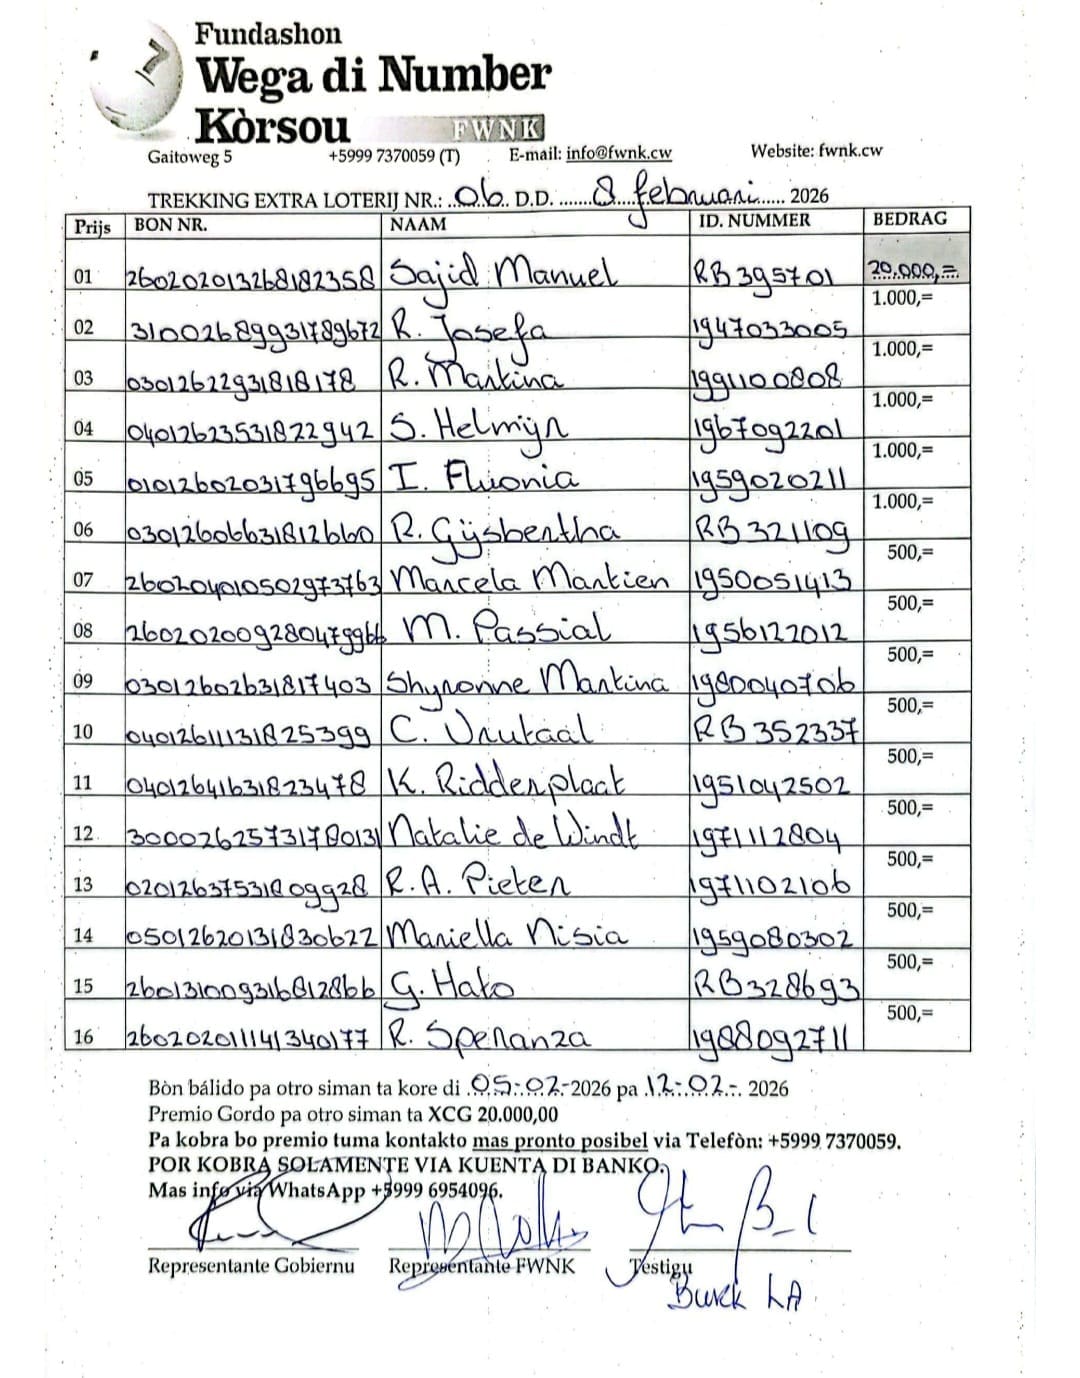 Fundashon
Wega di Number
Kòrsou FWNK
Gaitoweg 5 +5999 7370059 (T) E-mail: info@fwnk.cw Website: fwnk.cw
TREKKING EXTRA LOTERIJ NR.: 06 D.D. 8 februari 2026
Prijs BON NR. NAAM ID. NUMMER BEDRAG
01 260202013268182358 Sajid Manuel RB395701 20.000,=
02 31002689931789672 R. Josefa 1947033005 1.000,=
03 03012622931818178 R. Martina 1991100808 1.000,=
04 04012623531822942 S. Helmijn 1967092201 1.000,=
05 01012602031796695 I. Fluonia 1959020211 1.000,=
06 03012606631812660 R. Gijsbertha RB321109 1.000,=
07 260204010502973763 Marcela Martien 1950051413 500,=
08 260202009280479966 M. Passial 1956122012 500,=
09 03012602631817403 Shyronne Martina 1980040706 500,=
10 04012611131825399 C. Vrutaal RB352337 500,=
11 04012641631823478 K. Ridderplaat 1951042502 500,=
12 30002625731780131 Natalie de Windt 1971112804 500,=
13 02012637531809928 R.A. Pieter 1971102106 500,=
14 05012620131830622 Mariella Nisia 1959080302 500,=
15 260131009316812866 G. Hato RB328693 500,=
16 260202011141340177 R. Speranza 1988092711 500,=
Bòn bálido pa otro siman ta kore di 05-02-2026 pa 12-02-2026
Premio Gordo pa otro siman ta XCG 20.000,00
Pa kobra bo premio tuma kontakto mas pronto posibel via Telefòn: +5999 7370059.
POR KOBRA SOLAMENTE VIA KUENTA DI BANKO.
Mas info via WhatsApp +5999 6954096.
Representante Gobiernu Representante FWNK Testigu